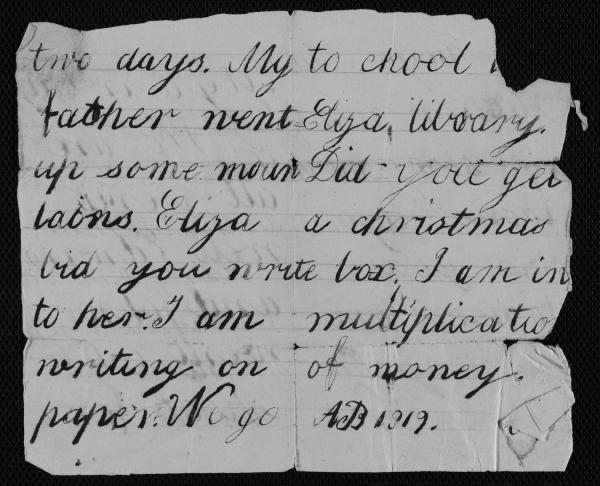 two days. My
father went
up some moun
tains. Eliza
bid you write
to her. I am
writing on
paper. We go
to chool
Eliza, library.
Did you get
a christmas
box. I am in
multiplicatio
of money.
AB 1819.